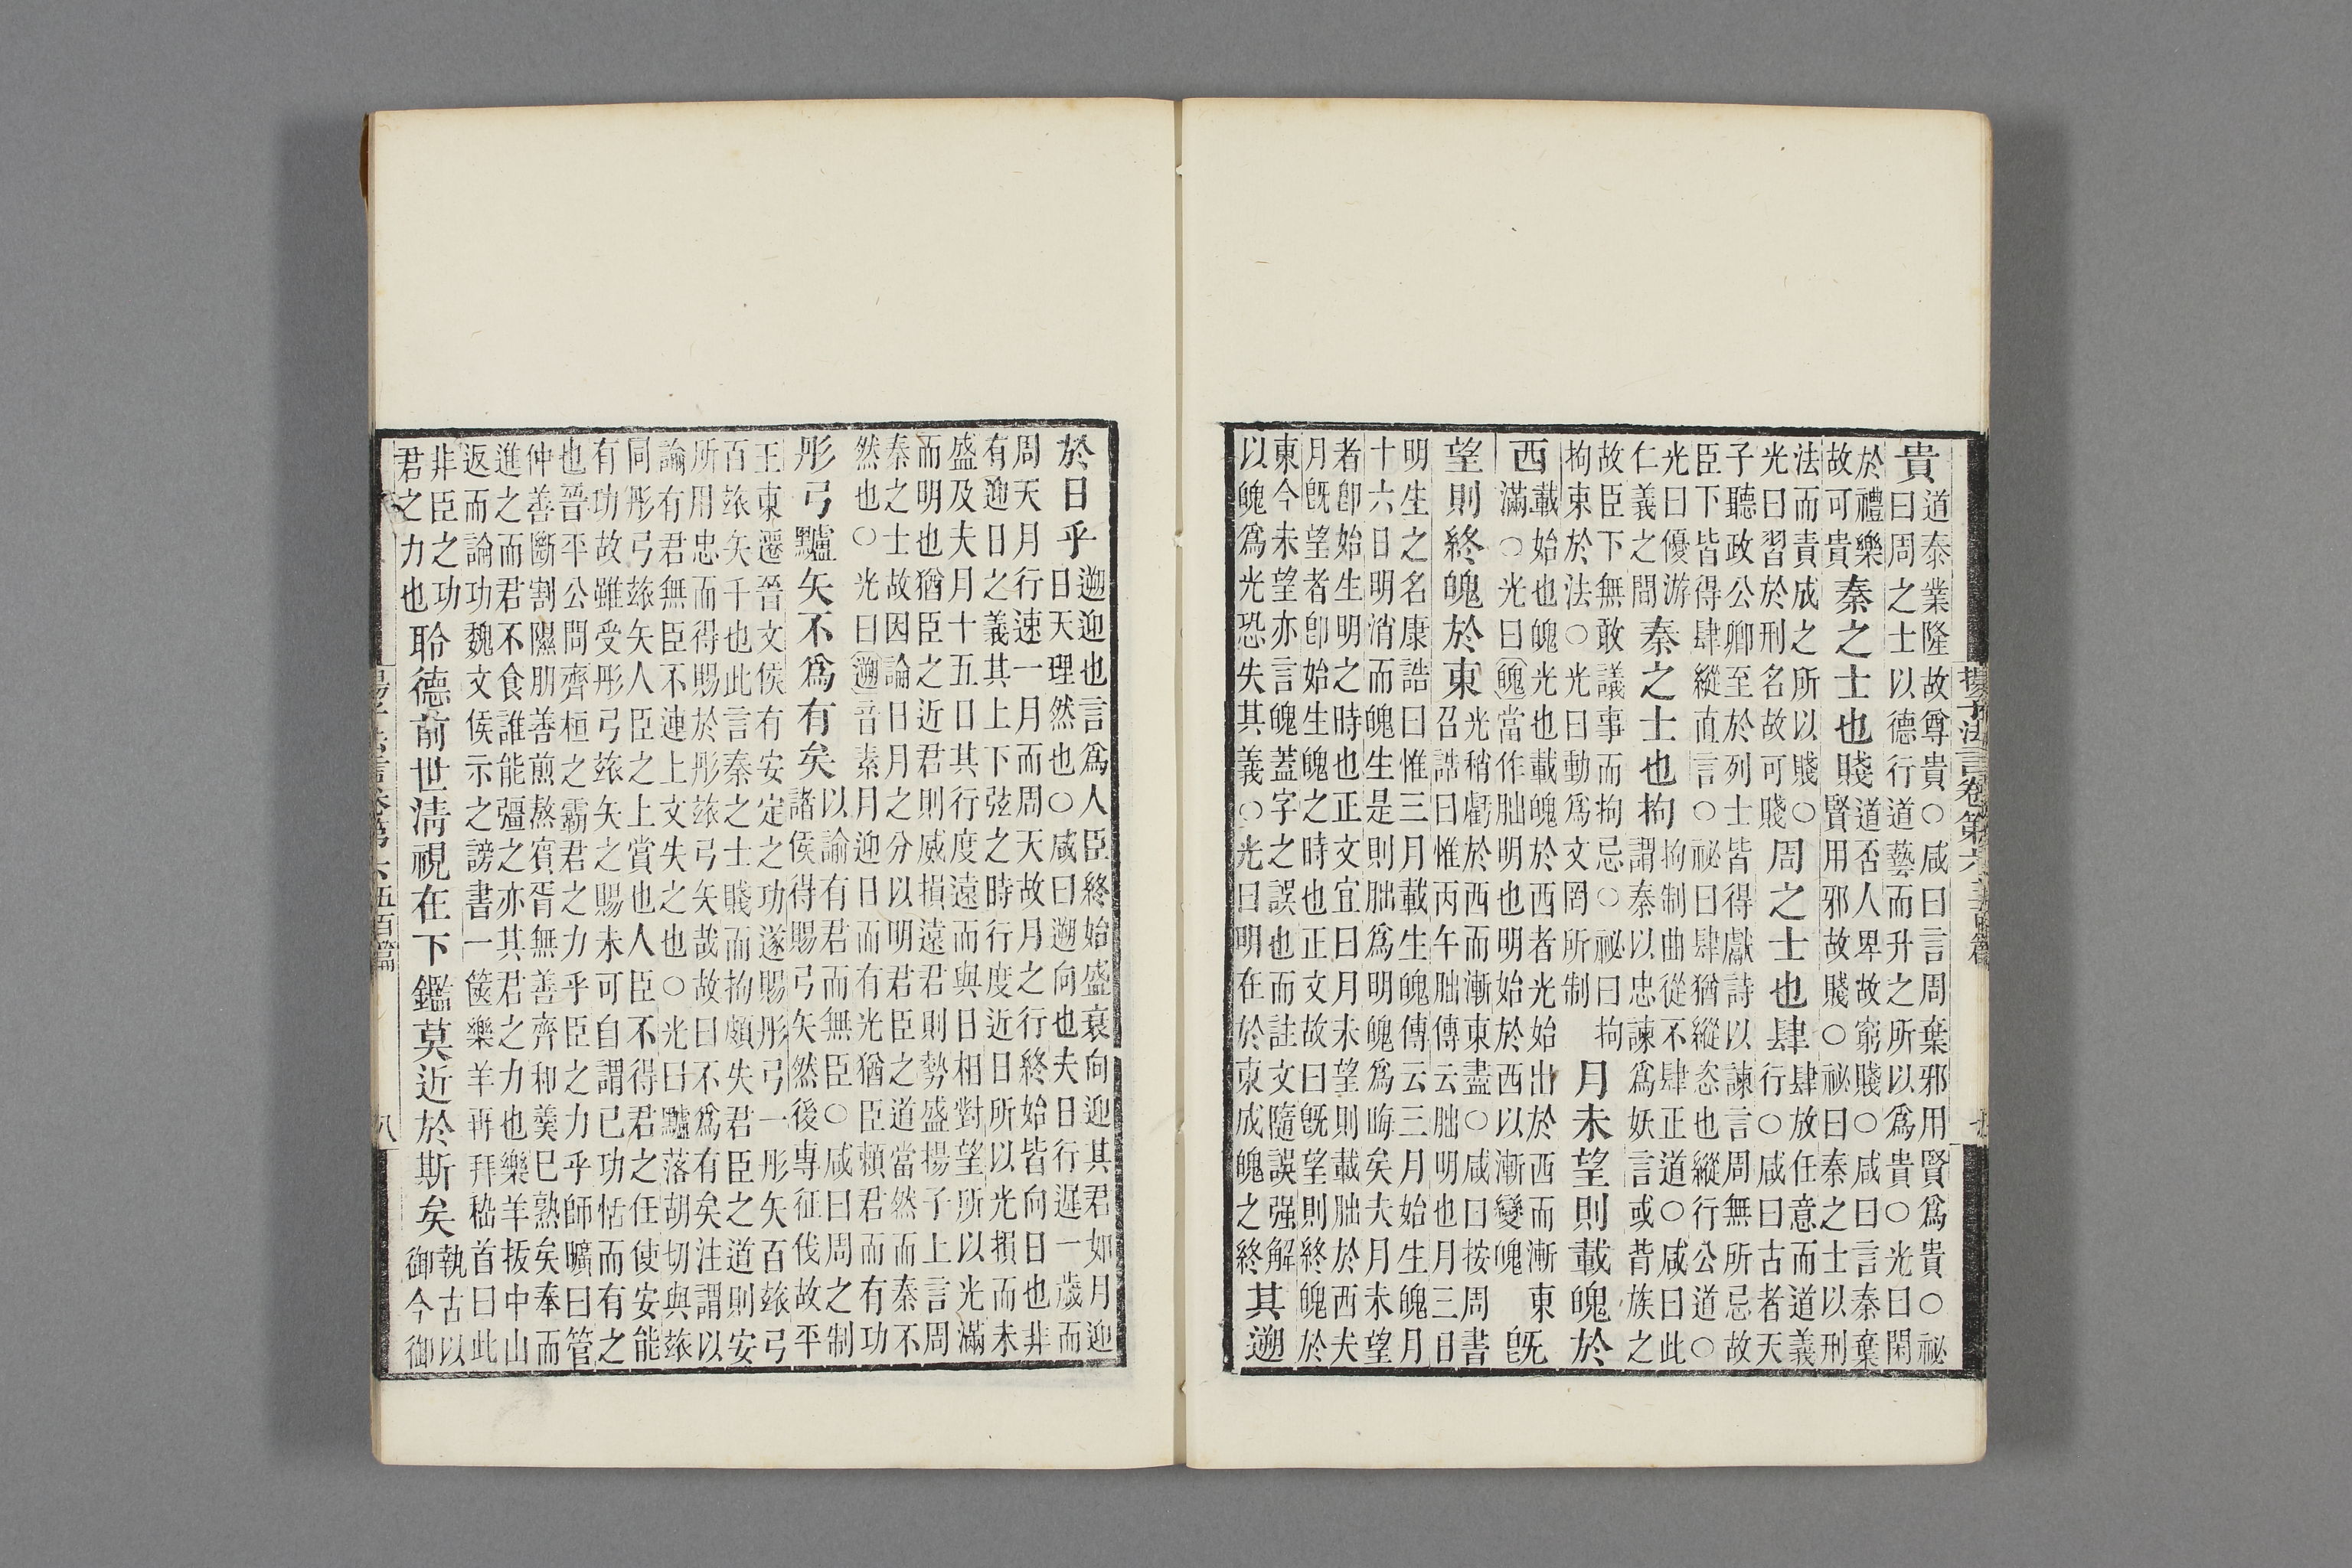 揚子法言卷第六
貴
道泰業隆故尊貴○咸曰言周棄邪用賢爲貴○祕
曰周之士以德行道藝而升之所以爲貴○光曰閑
於禮樂
故可貴
秦之士也賤
道否人卑故窮賤○咸曰言秦棄
賢用邪故賤○祕曰秦之士以刑
法而責成之所以賤○
光曰習於刑名故可賤
周之士也肆
肆放任意而道義
行○咸曰古者天
子聽政公卿至於列士皆得獻詩以諫言周無所忌故
臣下皆得肆縱直言○祕曰肆猶縱恣也縱行公道○
光曰優游
仁義之間
秦之士也拘
拘制曲從不肆正道○咸曰此
謂秦以忠諫爲妖言或昔族之
故臣下無敢議事而拘忌○祕曰拘
拘束於法○光曰動爲文罔所制
月未望則載魄於
西
載始也魄光也載魄於西者光始出於西而漸東
滿○光曰魄當作朏明也明始於西以漸變魄
旣
望則終魄於東
光稍虧於西而漸東盡○咸曰按周書
召誥曰惟丙午朏傳云朏明也月三日
明生之名康誥曰惟三月載生魄傳云三月始生魄月
十六日明消而魄生是則朏爲明魄爲晦矣夫月未望
者卽始生明之時也正文宜曰月未望則載朏於西夫
月旣望者卽始生魄之時也正文故曰旣望則終魄於
東今未望亦言魄蓋字之誤也而註文隨誤强解
以魄爲光恐失其義○光曰明在於東成魄之終
其遡
於日乎
遡迎也言爲人臣終始盛衰向迎其君如月迎
日天理然也○咸曰遡向也夫日行遲一歲而
周天月行速一月而周天故月之行終始皆向日也非
有迎日之義其上下弦之時行度近日所以光損而未
盛及夫月十五日其行度遠而與日相對望所以光滿
而明也猶臣之近君則威損遠君則勢盛揚子上言周
秦之士故因論日月之分以明君臣之道當然而秦不
然也○光曰遡音素月迎日而有光猶臣賴君而有功
彤弓黸矢不爲有矣
以諭有君而無臣○咸曰周之制
諸侯得賜弓矢然後專征伐故平
王東遷晉文侯有安定之功遂賜彤弓一彤矢百玈弓
百玈矢千也此言秦之士賤而拘頗失君臣之道則安
所用忠而得賜於彤玈弓矢哉故曰不爲有矣注謂以
諭有君無臣不連上文失之也○光曰黸落胡切與玈
同彤弓玈矢人臣之上賞也人臣不得君之任使安能
有功故雖受彤弓玈矢之賜未可自謂已功恬而有之
也晉平公問齊桓之霸君之力乎臣之力乎師曠曰管
仲善斷割隰朋善煎熬賓胥無善齊和羹已熟矣奉而
進之而君不食誰能彊之亦其君之力也樂羊拔中山
返而論功魏文侯示之謗書一篋樂羊再拜嵇首曰此
非臣之功
君之力也
聆德前世淸視在下鑑莫近於斯矣
執古以
御今御
五百篇
八